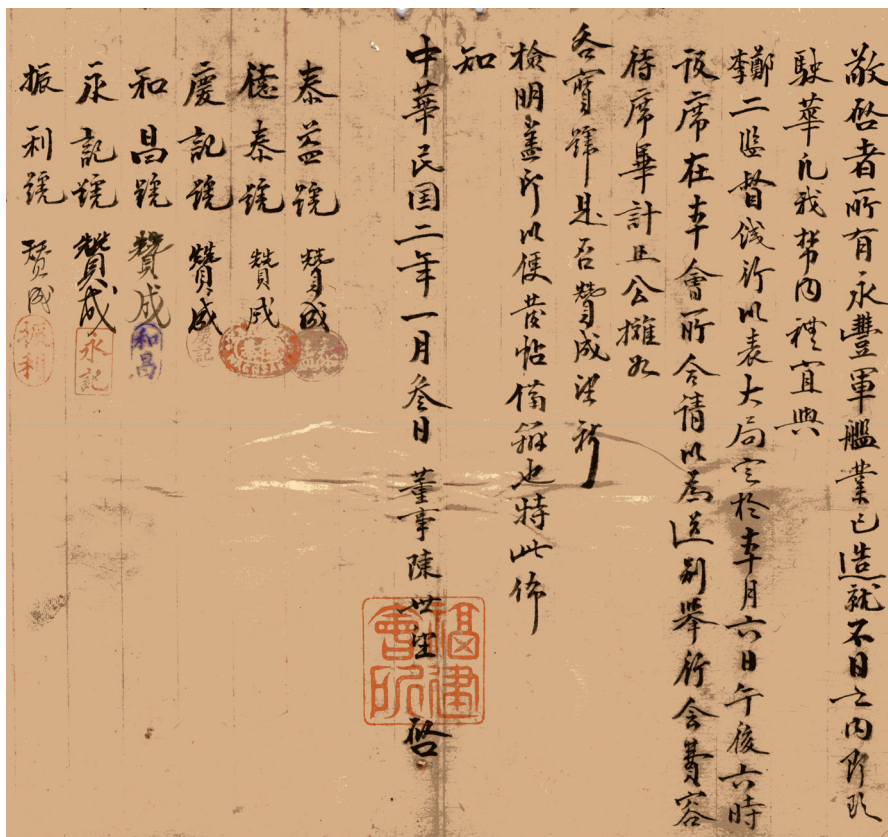 敬啓者所有永豐軍艦業已造就不日之内即欲
駛華凡我幫内禮宜與
鄭李二監督餞行以表大局定於本月六日午後六時
設席在本會所合請以為送別舉行会費容
待席畢計正公攤如
各寶號是否贊成望祈
檢明蓋印以便發帖備辦也特此佈
知
中華民国二年一月叁日 董事陳世望 啓
福建會所
泰益號 贊成
德泰號 贊成
慶記號 贊成
慶記
和昌號 贊成
和昌
永記號 贊成
永記
振利號 贊成
振利